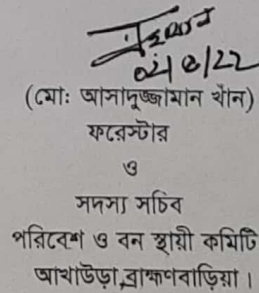 ০২/৫/২২
(মো: আসাদুজ্জামান খাঁন)
ফরেস্টার
ও
সদস্য সচিব
পরিবেশ ও বন স্থায়ী কমিটি
আখাউড়া,ব্রাহ্মণবাড়িয়া।